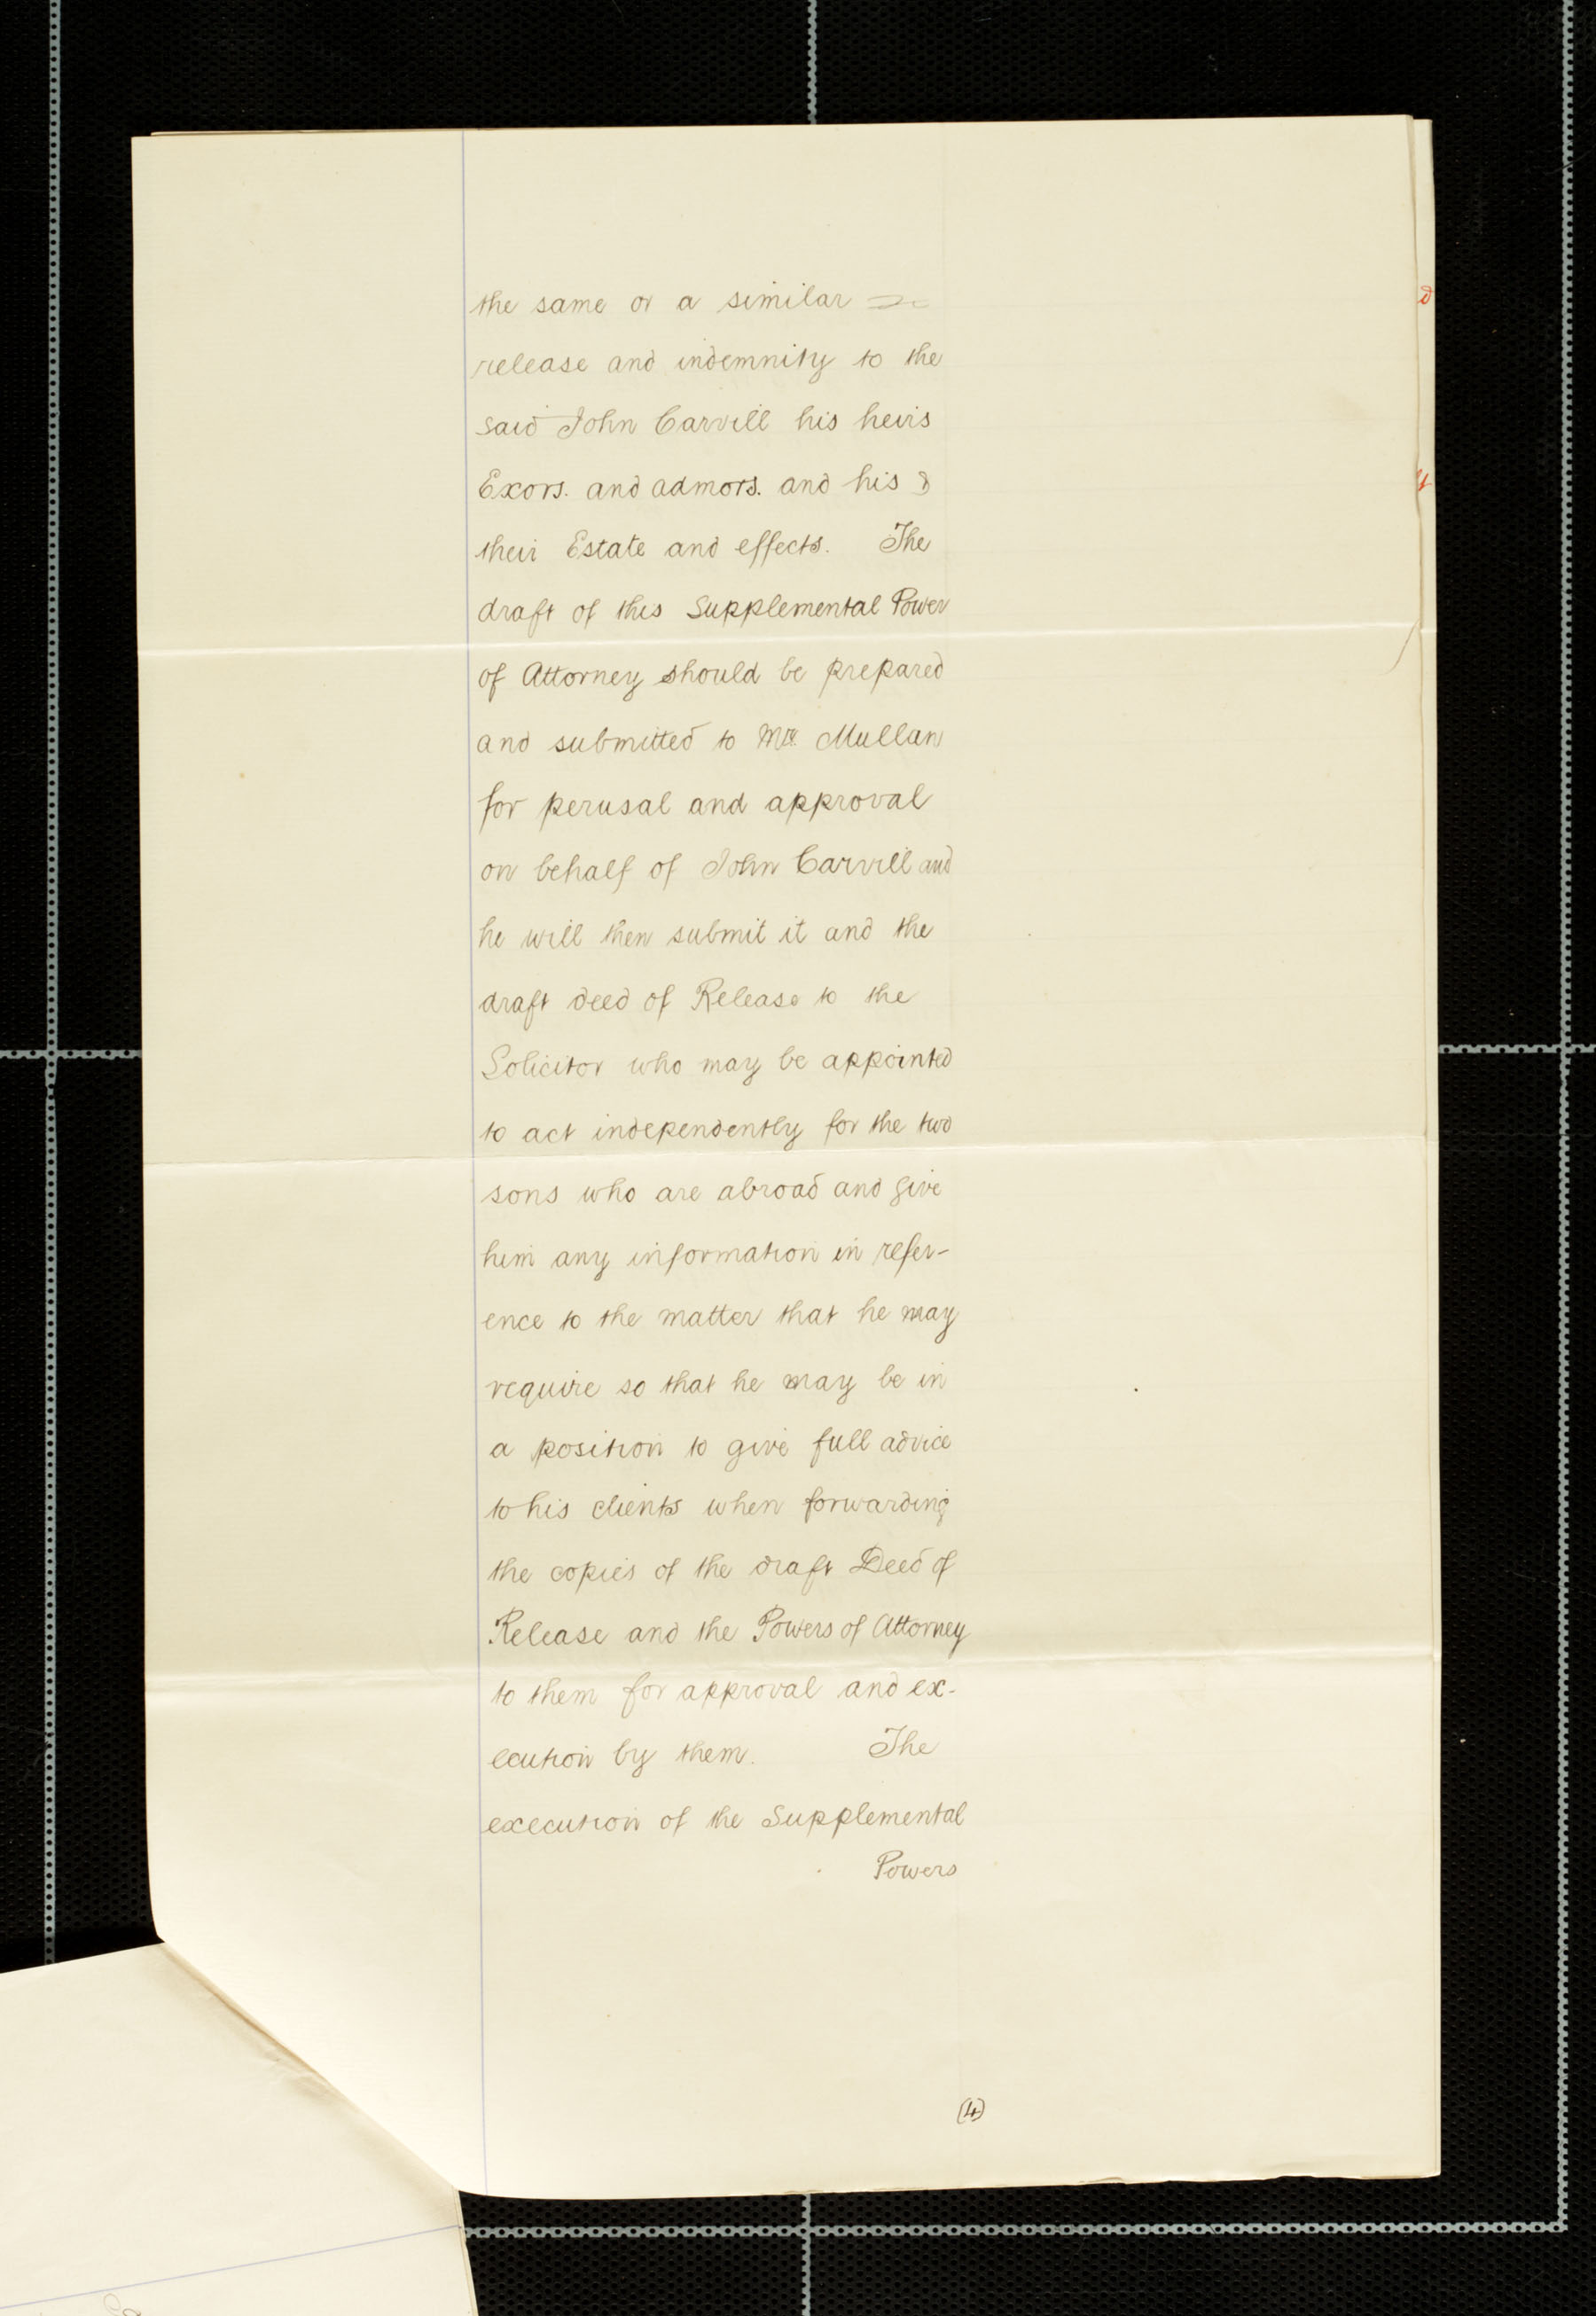 the same or a similar
release and indemnity to the
said John Carvill his heirs
Exors. and admors. and his &
their Estate and effects. The
draft of this Supplemental Power
of Attorney should be prepared
and submitted to Mr. Mullan
for perusal and approval
on behalf of John Carvill and
he will then submit it and the
draft deed of Release to the
Solicitor who may be appointed
to act independently for the two
sons who are abroad and give
him any information in refer-
ence to the matter that he may
require so that he may be in
a position to give full advice
to his clients when forwarding
the copies of the draft Deed of
Release and the Powers of Attorney
to them for approval and ex-
ecution by them. The
execution of the Supplemental
Powers
(4)